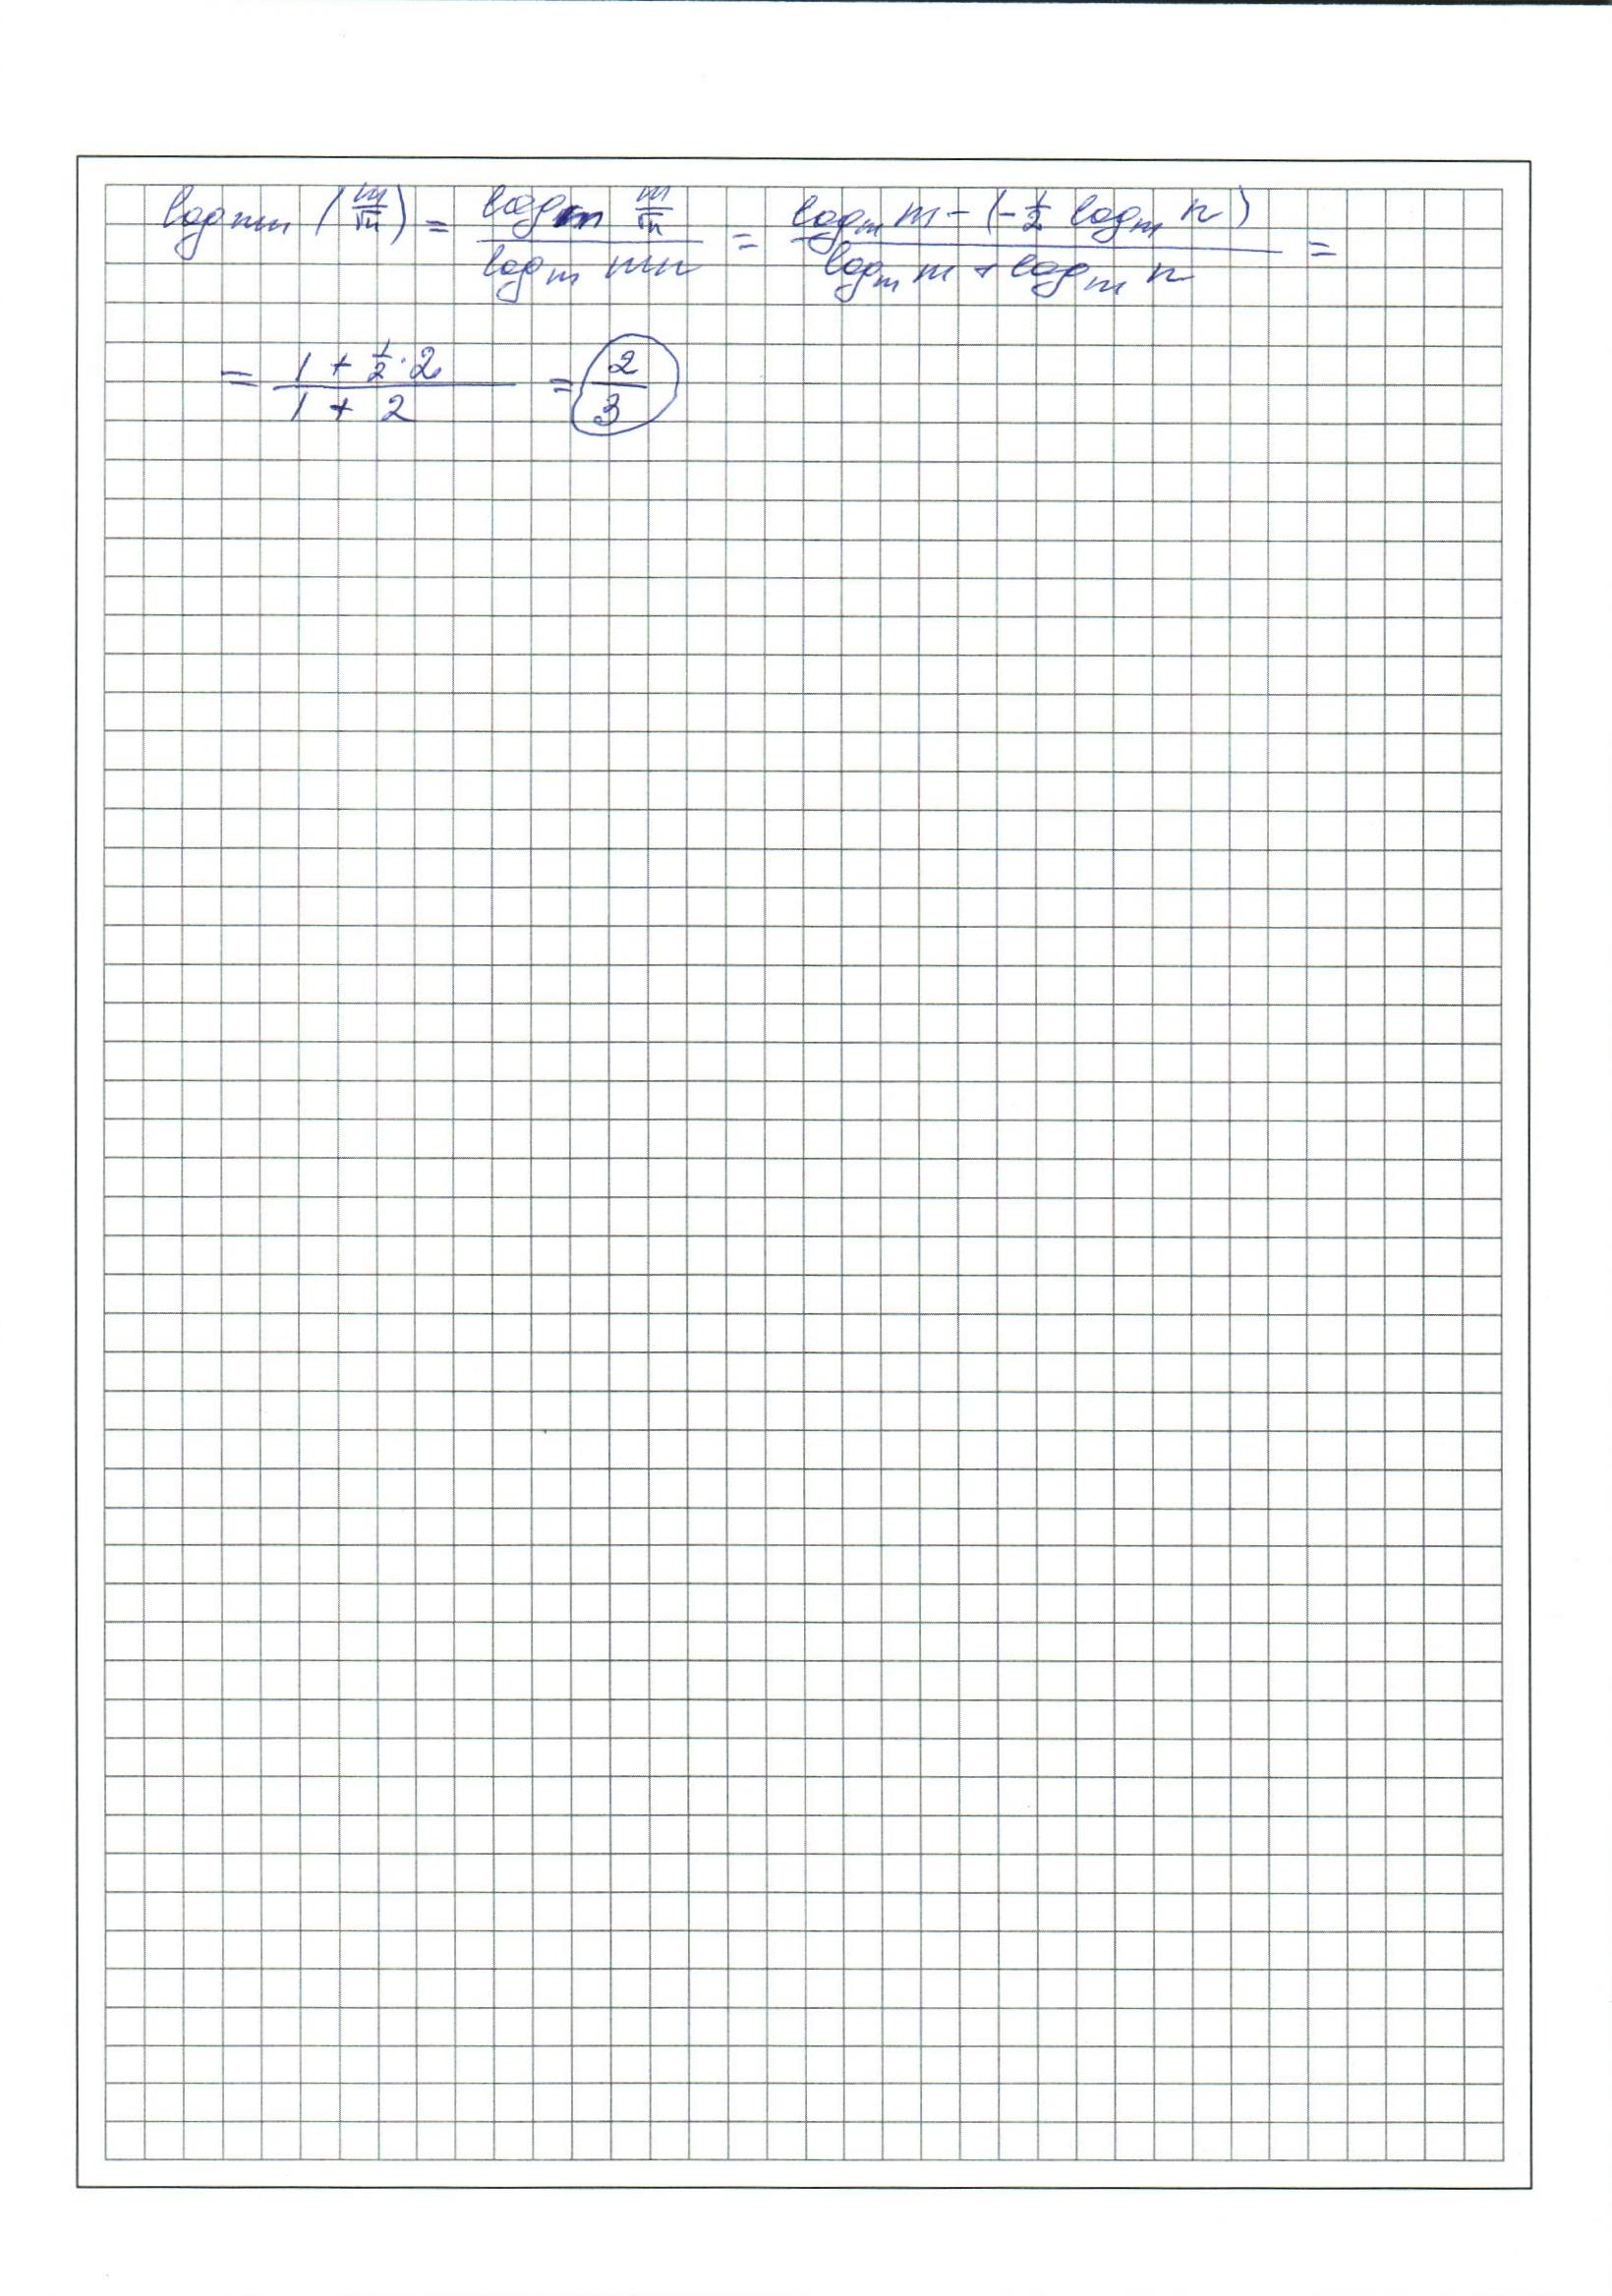 log_{mn} (m/√n) = (log_m m/√n)/(log_m mn) = (log_m m - (-1/2 log_m n))/(log_m m + log_m n) =
= (1 + 1/2 · 2)/(1 + 2) = 2/3